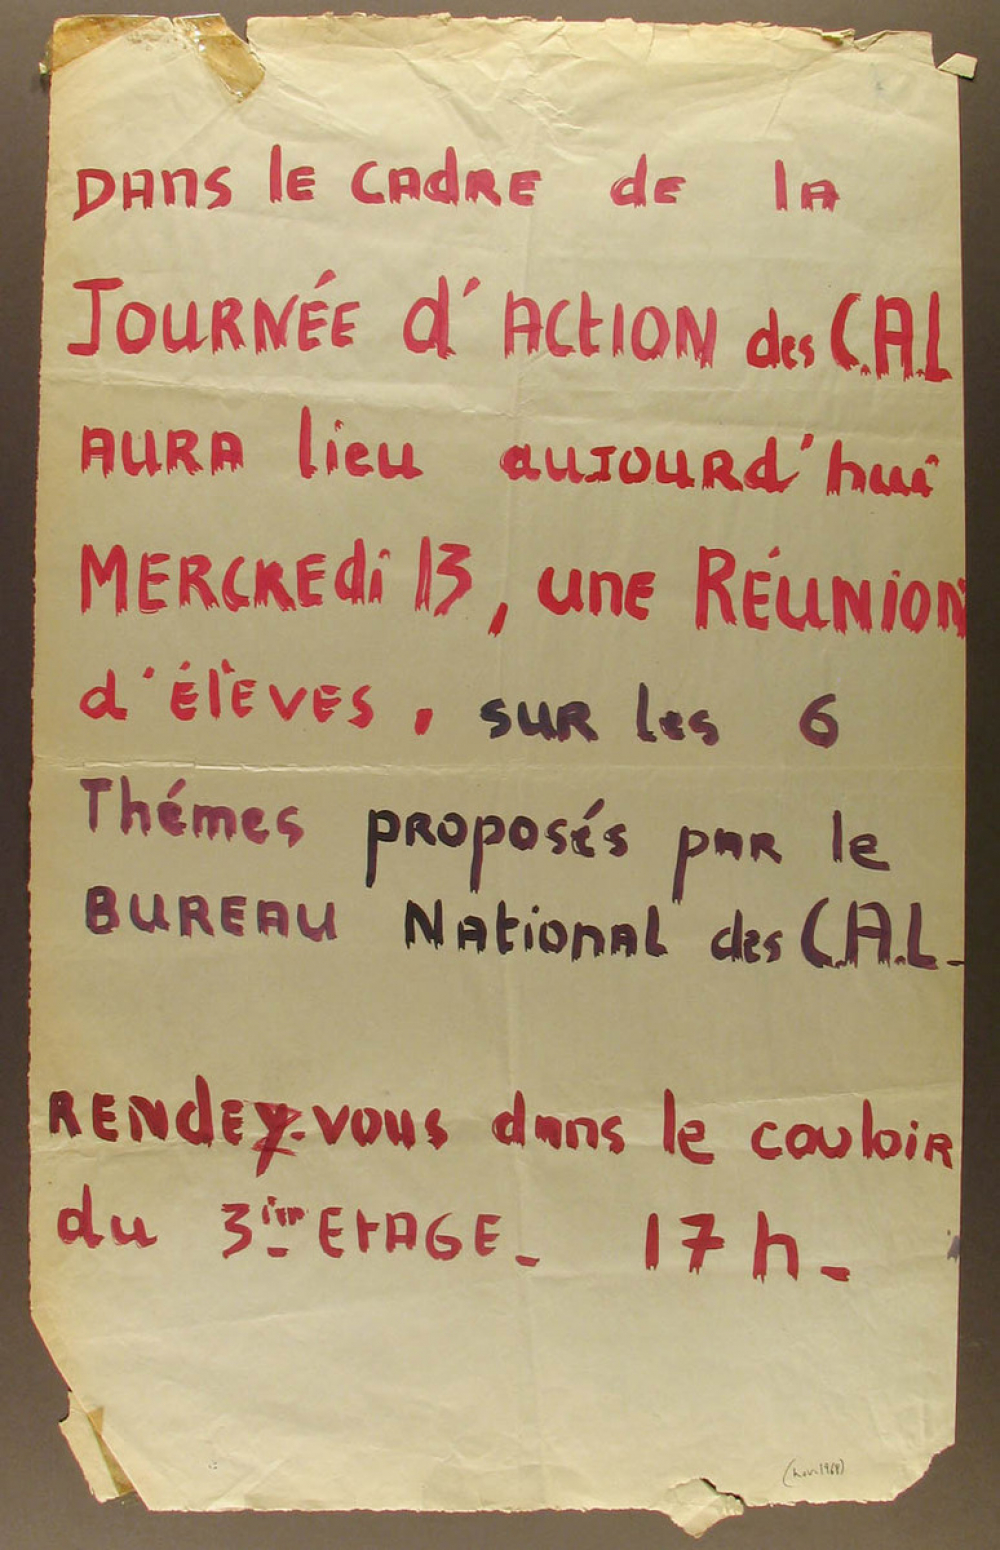 DANS lE CAdRE de lA
JOURNÉE d'ACtION des C.A.L
AURA lieu aujourd'hui
MERCREdi 13, une RÉUNION
d'élèves, sur les 6
Thémes proposés par le
BUREAU National des C.A.L-
RENdez-vous dans le couloir
du 3ièm EtAGE- 17 h-
(nov. 1968)